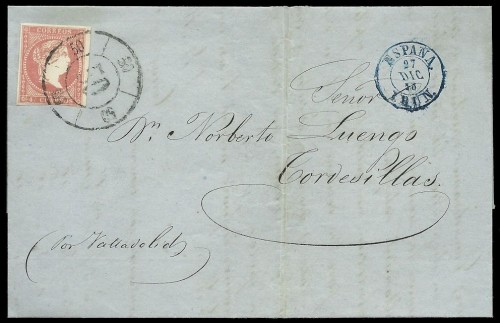 CORREOS
50
50
50
ESPAÑA.
27
DIC.
IRUN.
Señor
Dn. Norberto Luengo
Tordesillas.
por Valladolid